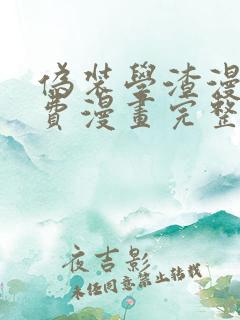 偽裝學渣漫
費漫畫完整
夜吉影
未经同意禁止转载